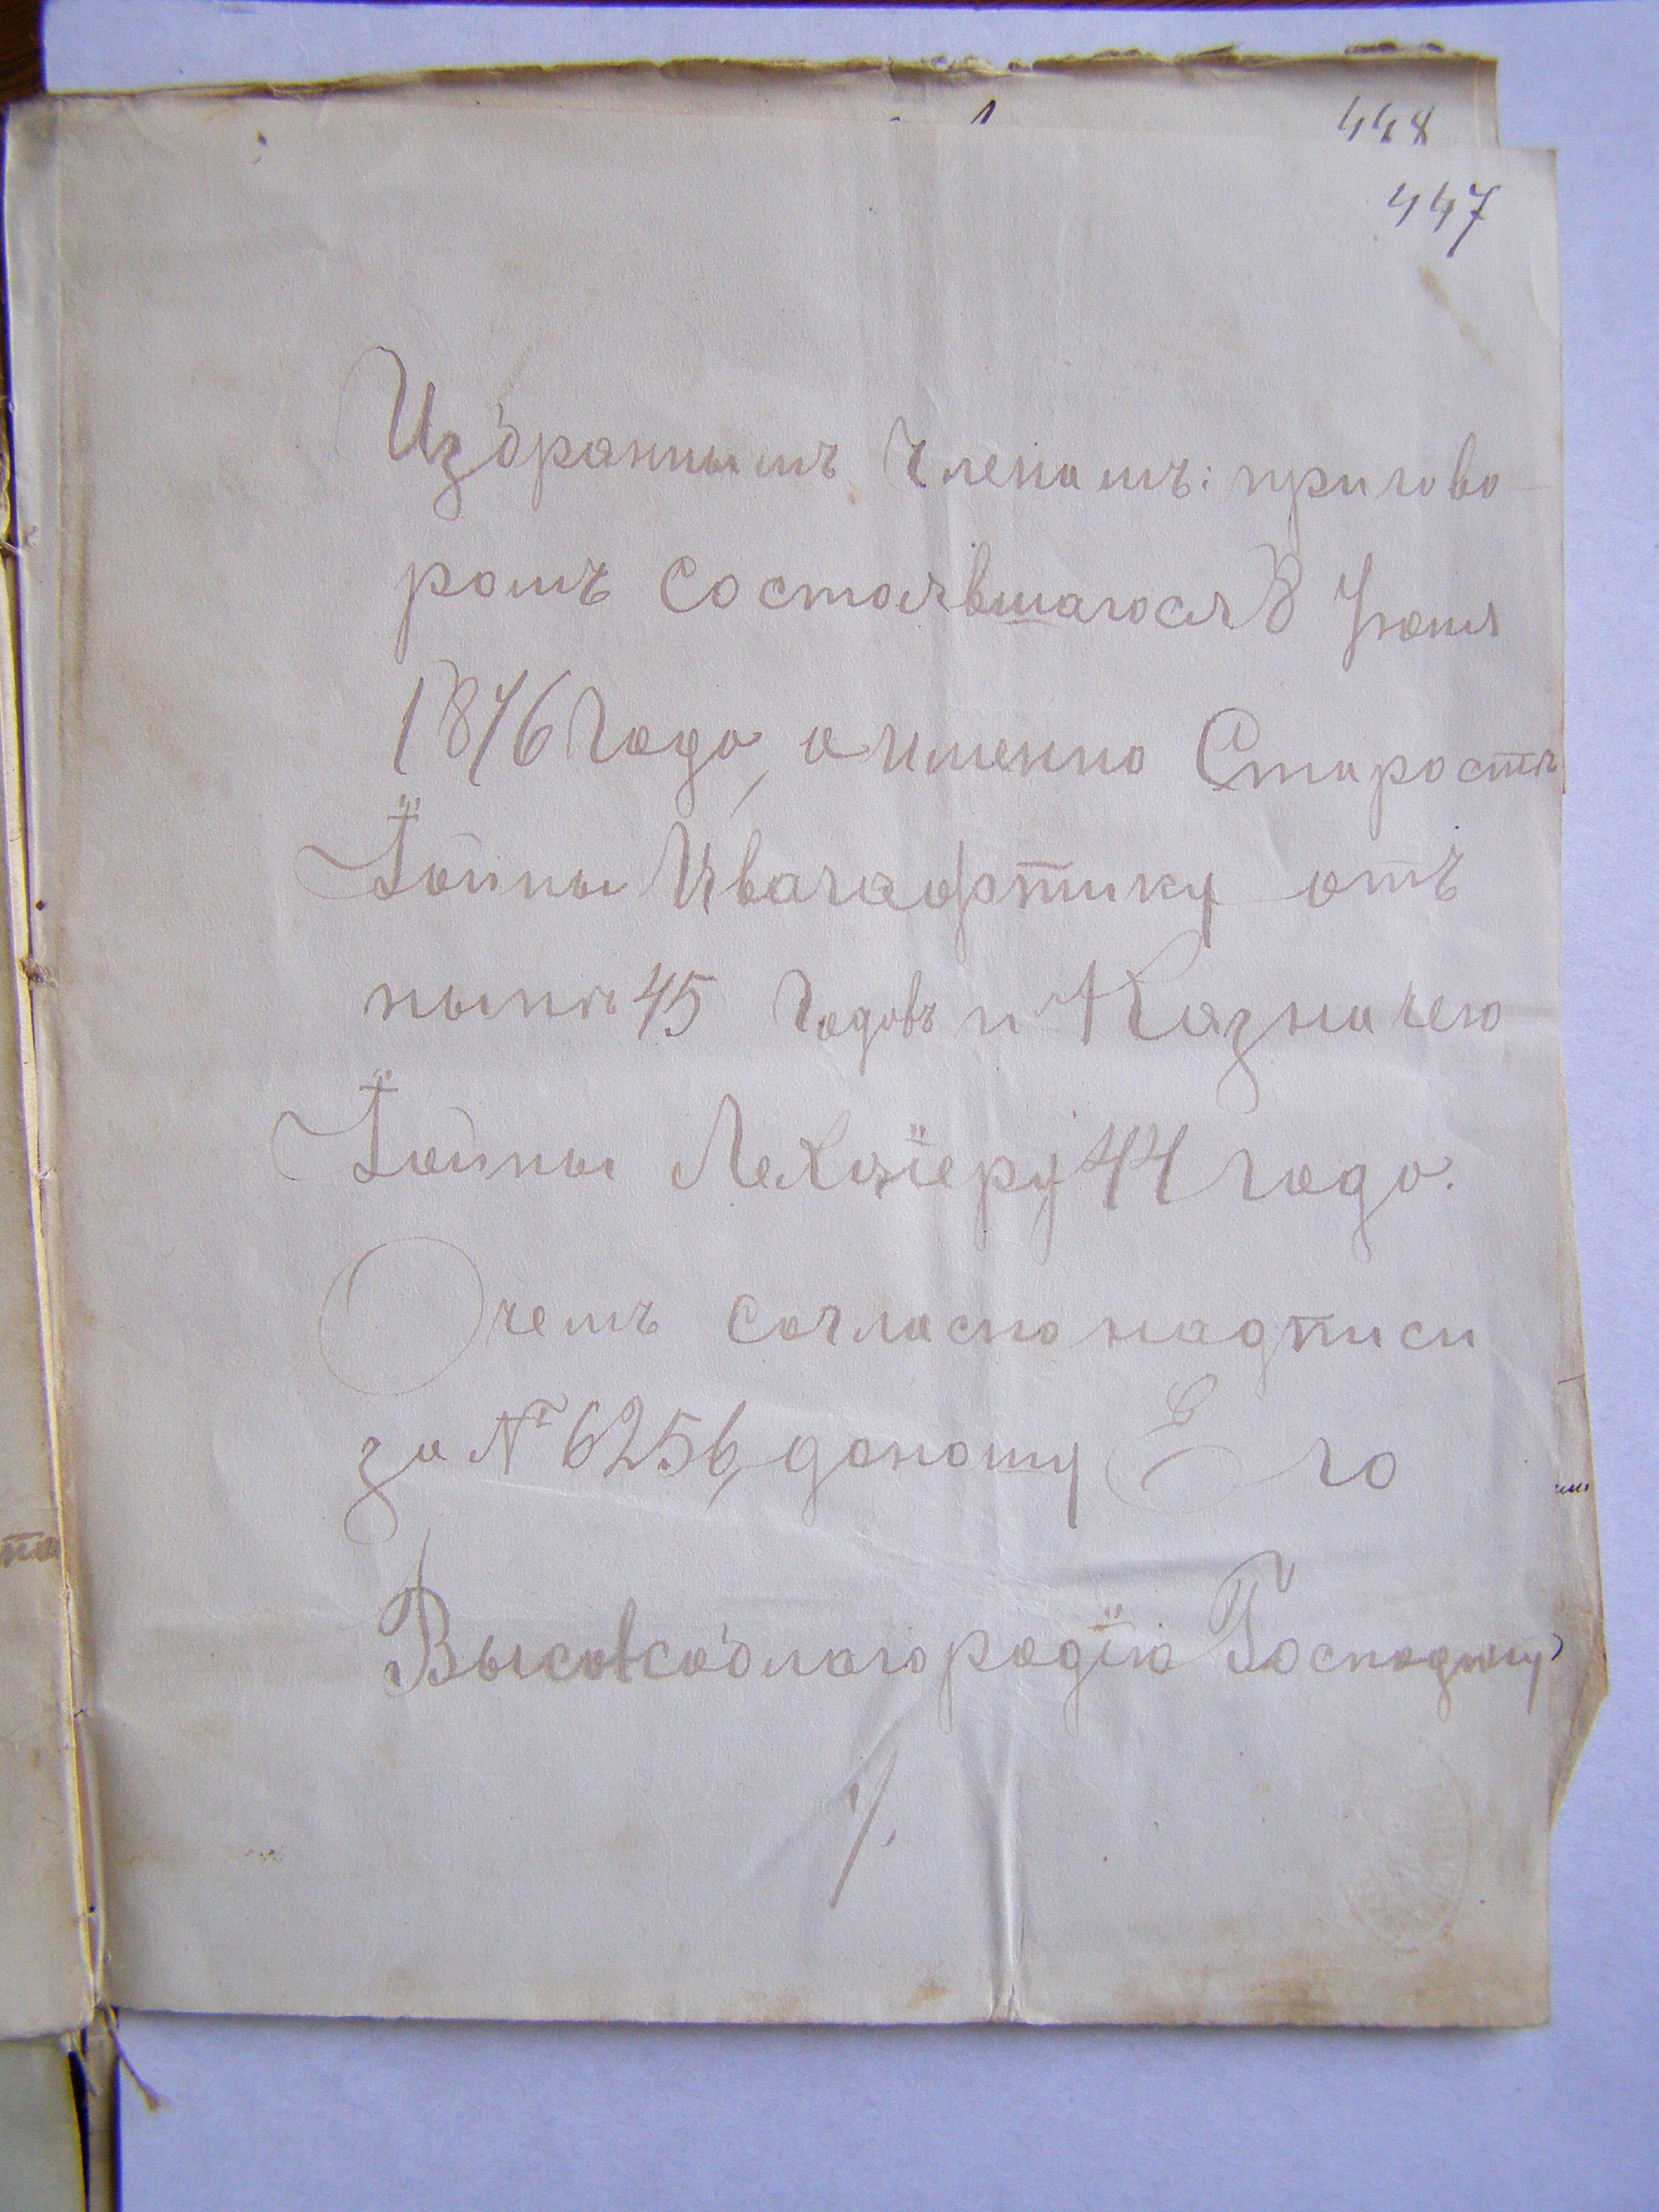 448
447
Избранымъ Членамъ: пригово
ромъ Состоявшагося 8 Іюня
1876 Года, а именно Старостѣ
Іойны Ивачафтику отъ
нынѣ 45 Годовъ и Казначею
Іойны 44 Года.
Очемъ согласно надписи
за № 6256, доношу Его
Высокоблагородію Господину